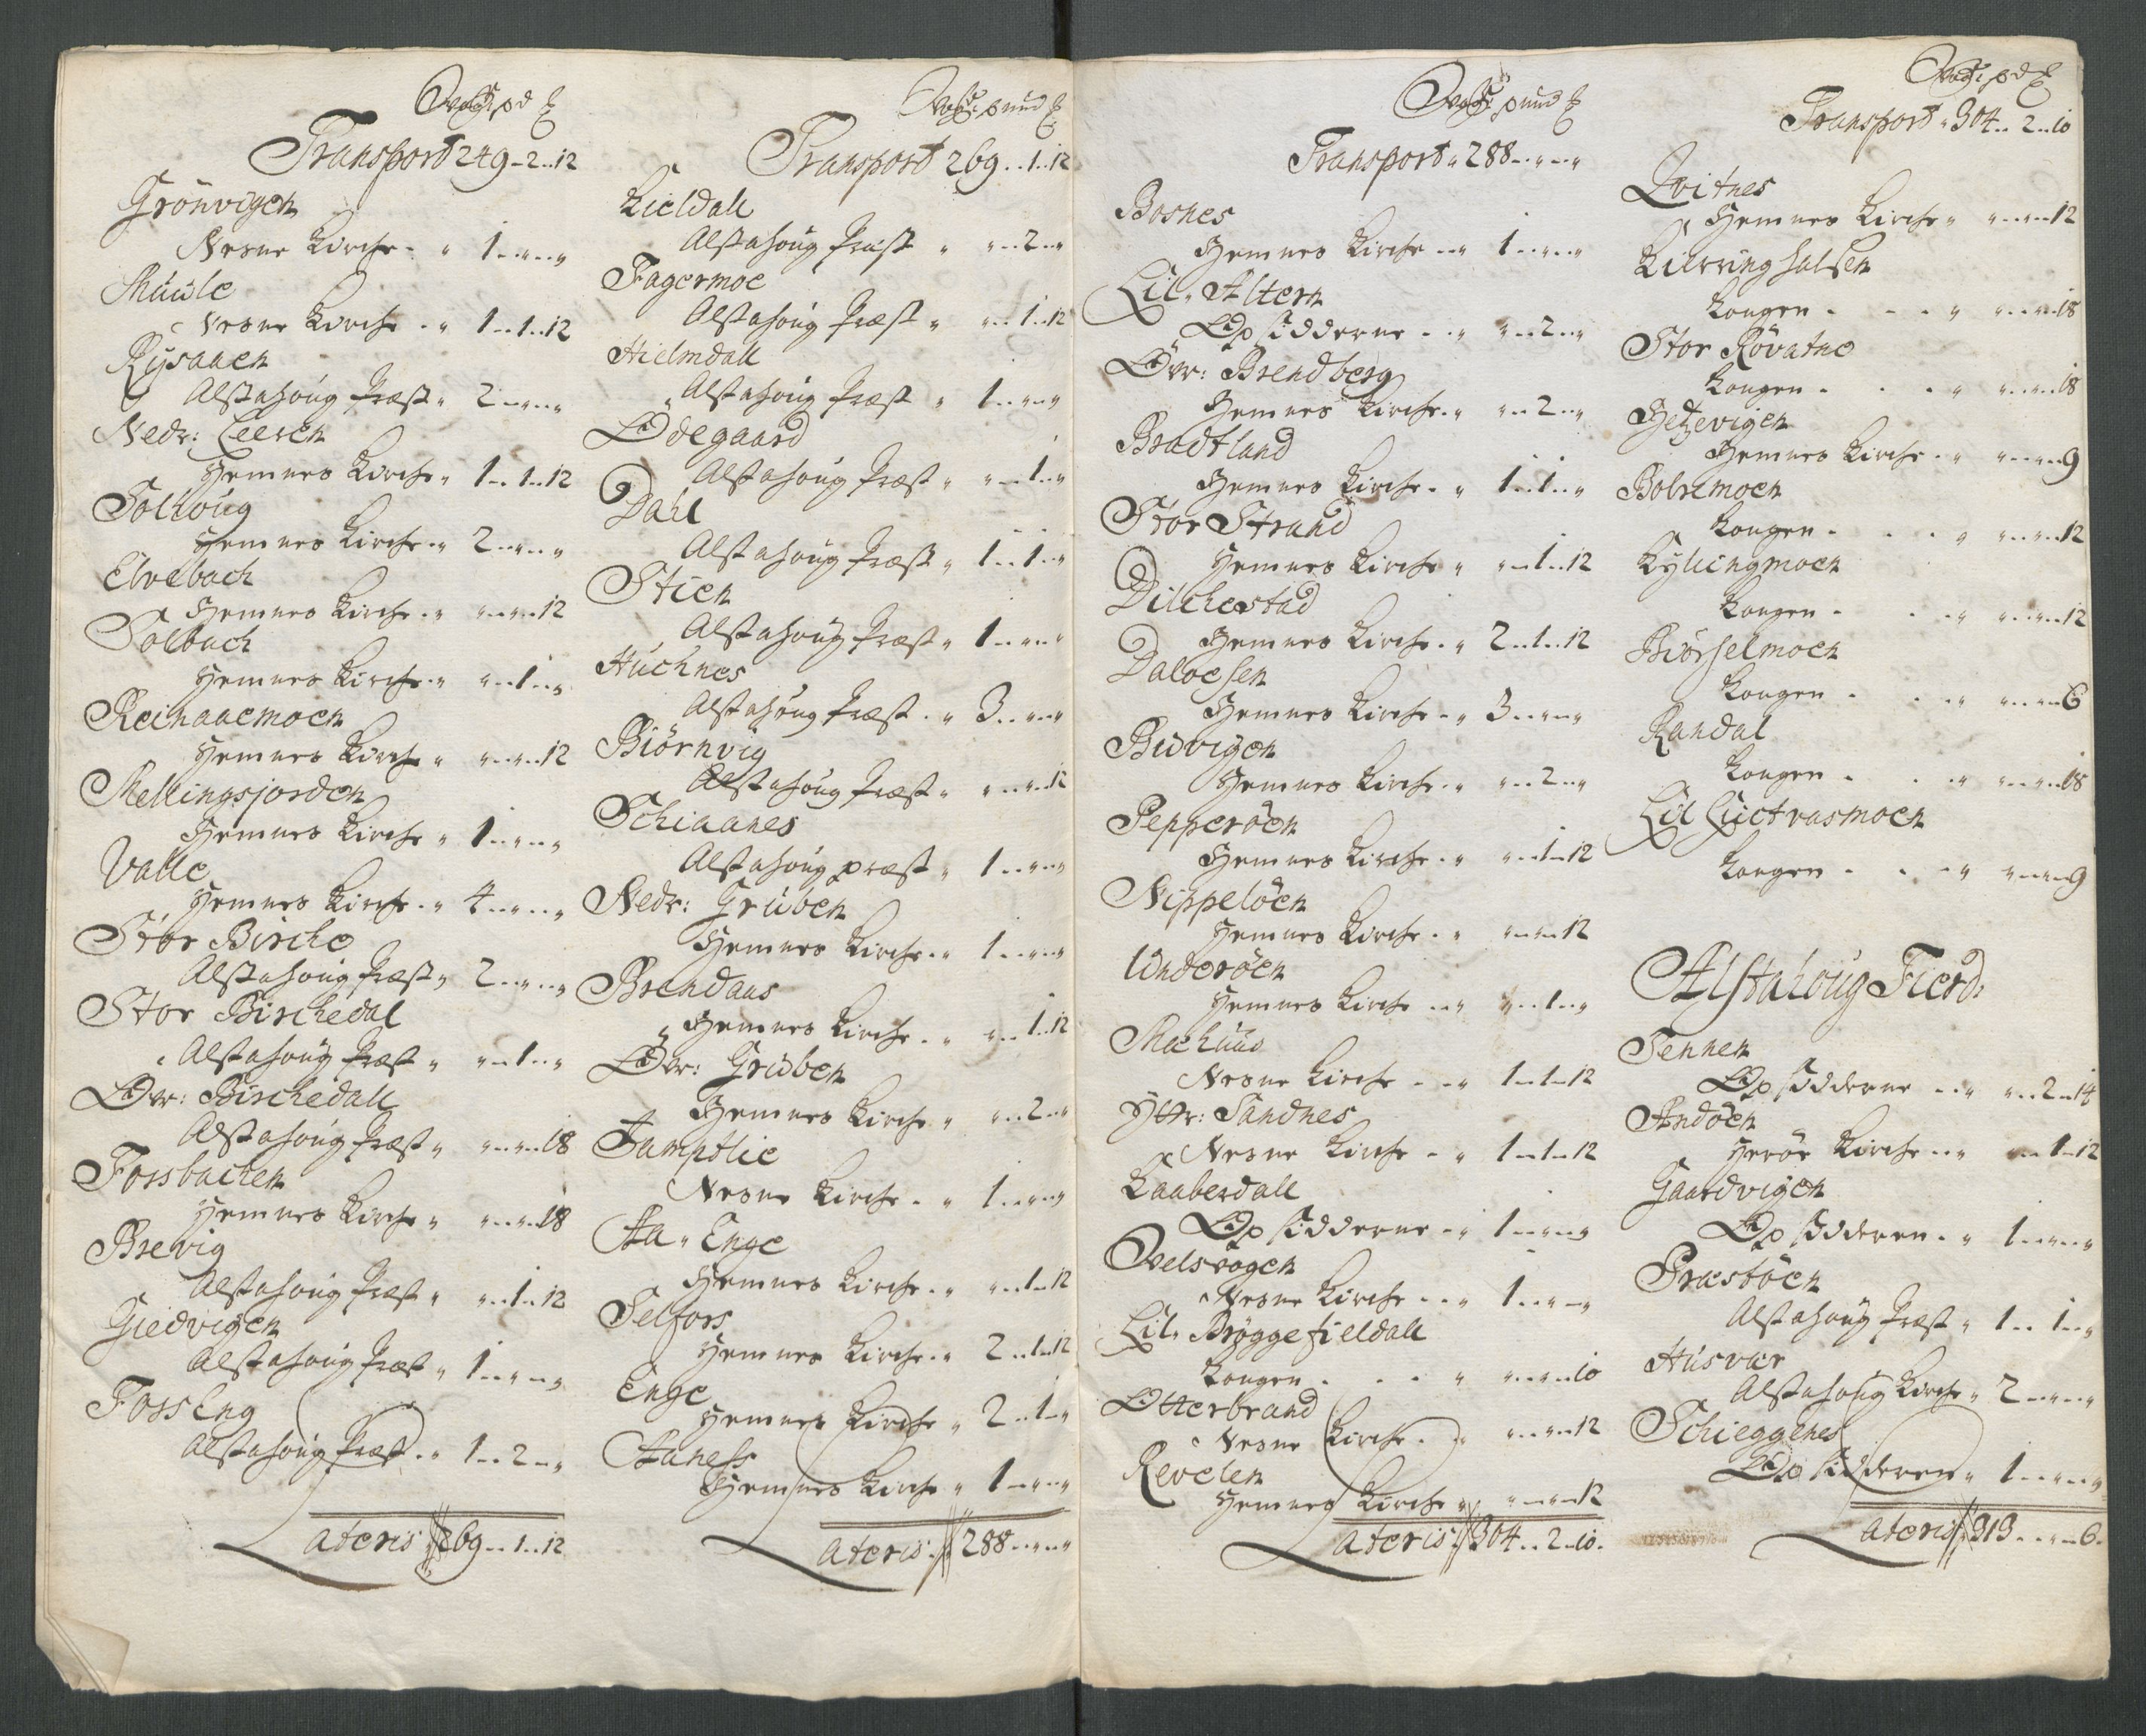 Woge pd ℔
Transport 249 - 2 - 12
Grönvigen
Nesne Kirche - " 1 - " - "
Muule
Nesne Kirche - " 1 - 1 - 12
Rysaaen
Alstahoug Præst " 2 - " - "
Nedr: Leeren
Hemnes Kirche " 1 - 1 - 12
Solhoug
Hemnes Kirche - " 2 - " - "
Elvebach
Hemnes Kirche - " " - " - 12
Solbach
Hemnes Kirche - " " - 1 - "
Reinaaemoen
Hemnes Kirche " " - " - 12
Mellingsjorden
Hemnes Kirche " 1 - " - "
Valle
Hemnes Kirche - " 4 - " - "
Stor Birche
Alstahoug Præst " 2 - " - "
Stor Birchedal
Alstahoug Præst " " - 1 - "
Övr: Birchedall
Alstahoug Præst " " - " - 18
Fossbachen
Hemnes Kirche " " - " - 18
Brevig
Alstahoug Præst " " - 1 - 12
Giedvigen
Alstahoug Præst " 1 - " - "
Fosseng
Alstahoug Præst - " 1 - 2 - "
Lateris 269 - 1 - 12
Woge pund ℔
Transport 269 - 1 - 12
Kieldall
Alstahoug Præst " " - 2 - "
Fagermoe
Alstahoug Præst " " - 1 - 12
Hielmdall
Alstahoug Præst " 1 - " - "
Ödegaard
Alstahoug Præst " " - 1 - "
Dahl
Alstahoug Præst " 1 - 1 - "
Stien
Alstahoug Præst " 1 - " - "
Huchnes
Alstahoug Præst - " 3 - " - "
Biörnvig
Alstahoug Præst " " - " - 12
Schiaanes
Alstahoug præst " 1 - " - "
Nedr: Gruben
Hemnes Kirche - " 1 - " - "
Brendaas
Hemnes Kirche - " " - 1 - 12
Övr: Gruben
Hemnes Kirche " " - 2 - "
Jamptlie
Nesne Kirche - " 1 - " - "
Aa " Enge
Hemnes Kirche - " " - 1 - 12
Selfors
Hemnes Kirche - " 2 - 1 - 12
Enge
Hemnes Kirche " 2 - 1 - "
Aaness
Hemnes Kirche " 1 - " - "
Lateris 288 - " - "
Woge pund ℔
Transport " 288 - " - "
Bosnes
Hemnes Kirche - " 1 - " - "
Lil " Altern
Opsidderne - " " - 2 - "
Övr: Brendberg
Hemnes Kirche - " " - 2 - "
Bradtland
Hemnes Kirche - " 1 - 1 - "
Stor Strand
Hemnes Kirche " " - 1 - 12
Dilchestad
Hemnes Kirche - " 2 - 1 - 12
Daloesen
Hemnes Kirche - " 3 - " - "
Buvigen
Hemnes Kirche - " " - 2 - "
Pepperöen
Hemnes Kirche - " " - 1 - 12
Nippelöen
Hemnes Kirche - " " - " - 12
Underöen
Hemnes Kirche - " " - 1 - "
Nesne Kirche - " 1 - 1 - 12
Yttr: Sandnes
Nesne Kirche - " 1 - 1 - 12
Kaaberdall
Opsidderne - " 1 - " - "
Qvelsvogen
Nesne Kirche - " 1 - " - "
Lil " Bryggefieldall
Kongen - - - " " - " - 10
Otterbrand
Nesne Kirche - " " - " - 12
Revelen
Hemnes Kirche " " - " - 12
Lateris 304 - 2 - 10
Woge pd ℔
Transport " 304 - 2 - 10
Qvitnes
Hemnes Kirche " " - " - 12
Kierringhalsen
Kongen - - - " " - " - 18
Stor Rövatne
Kongen - - - " " - " - 18
Hetzevigen
Hemnes Kirche - " " - " - 9
Bolsemoen
Kongen - - - " " - " - 12
Kyllingmoen
Kongen - - - " " - " - 12
Biörselmoen
Kongen - - - " " - " - 6
Randal
Kongen - - - " " - " - 18
Lil Luctrasmoen
Kongen - - - " " - " - 9
Alstahoug Fierd:
Tennen
Opsidderne - " " - 2 - 14
Andöen
Heröe Kirche - " " - 1 - 12
Gaardvigen
Opsidderen - " 1 - " - "
Præstöen
Alstahoug Præst " 1 - 1 - "
Husvær
Alstahoug Kirche " 2 - " - "
Schieggenes
Opsidderen " 1 - " - "
Lateris 313 - " - 6